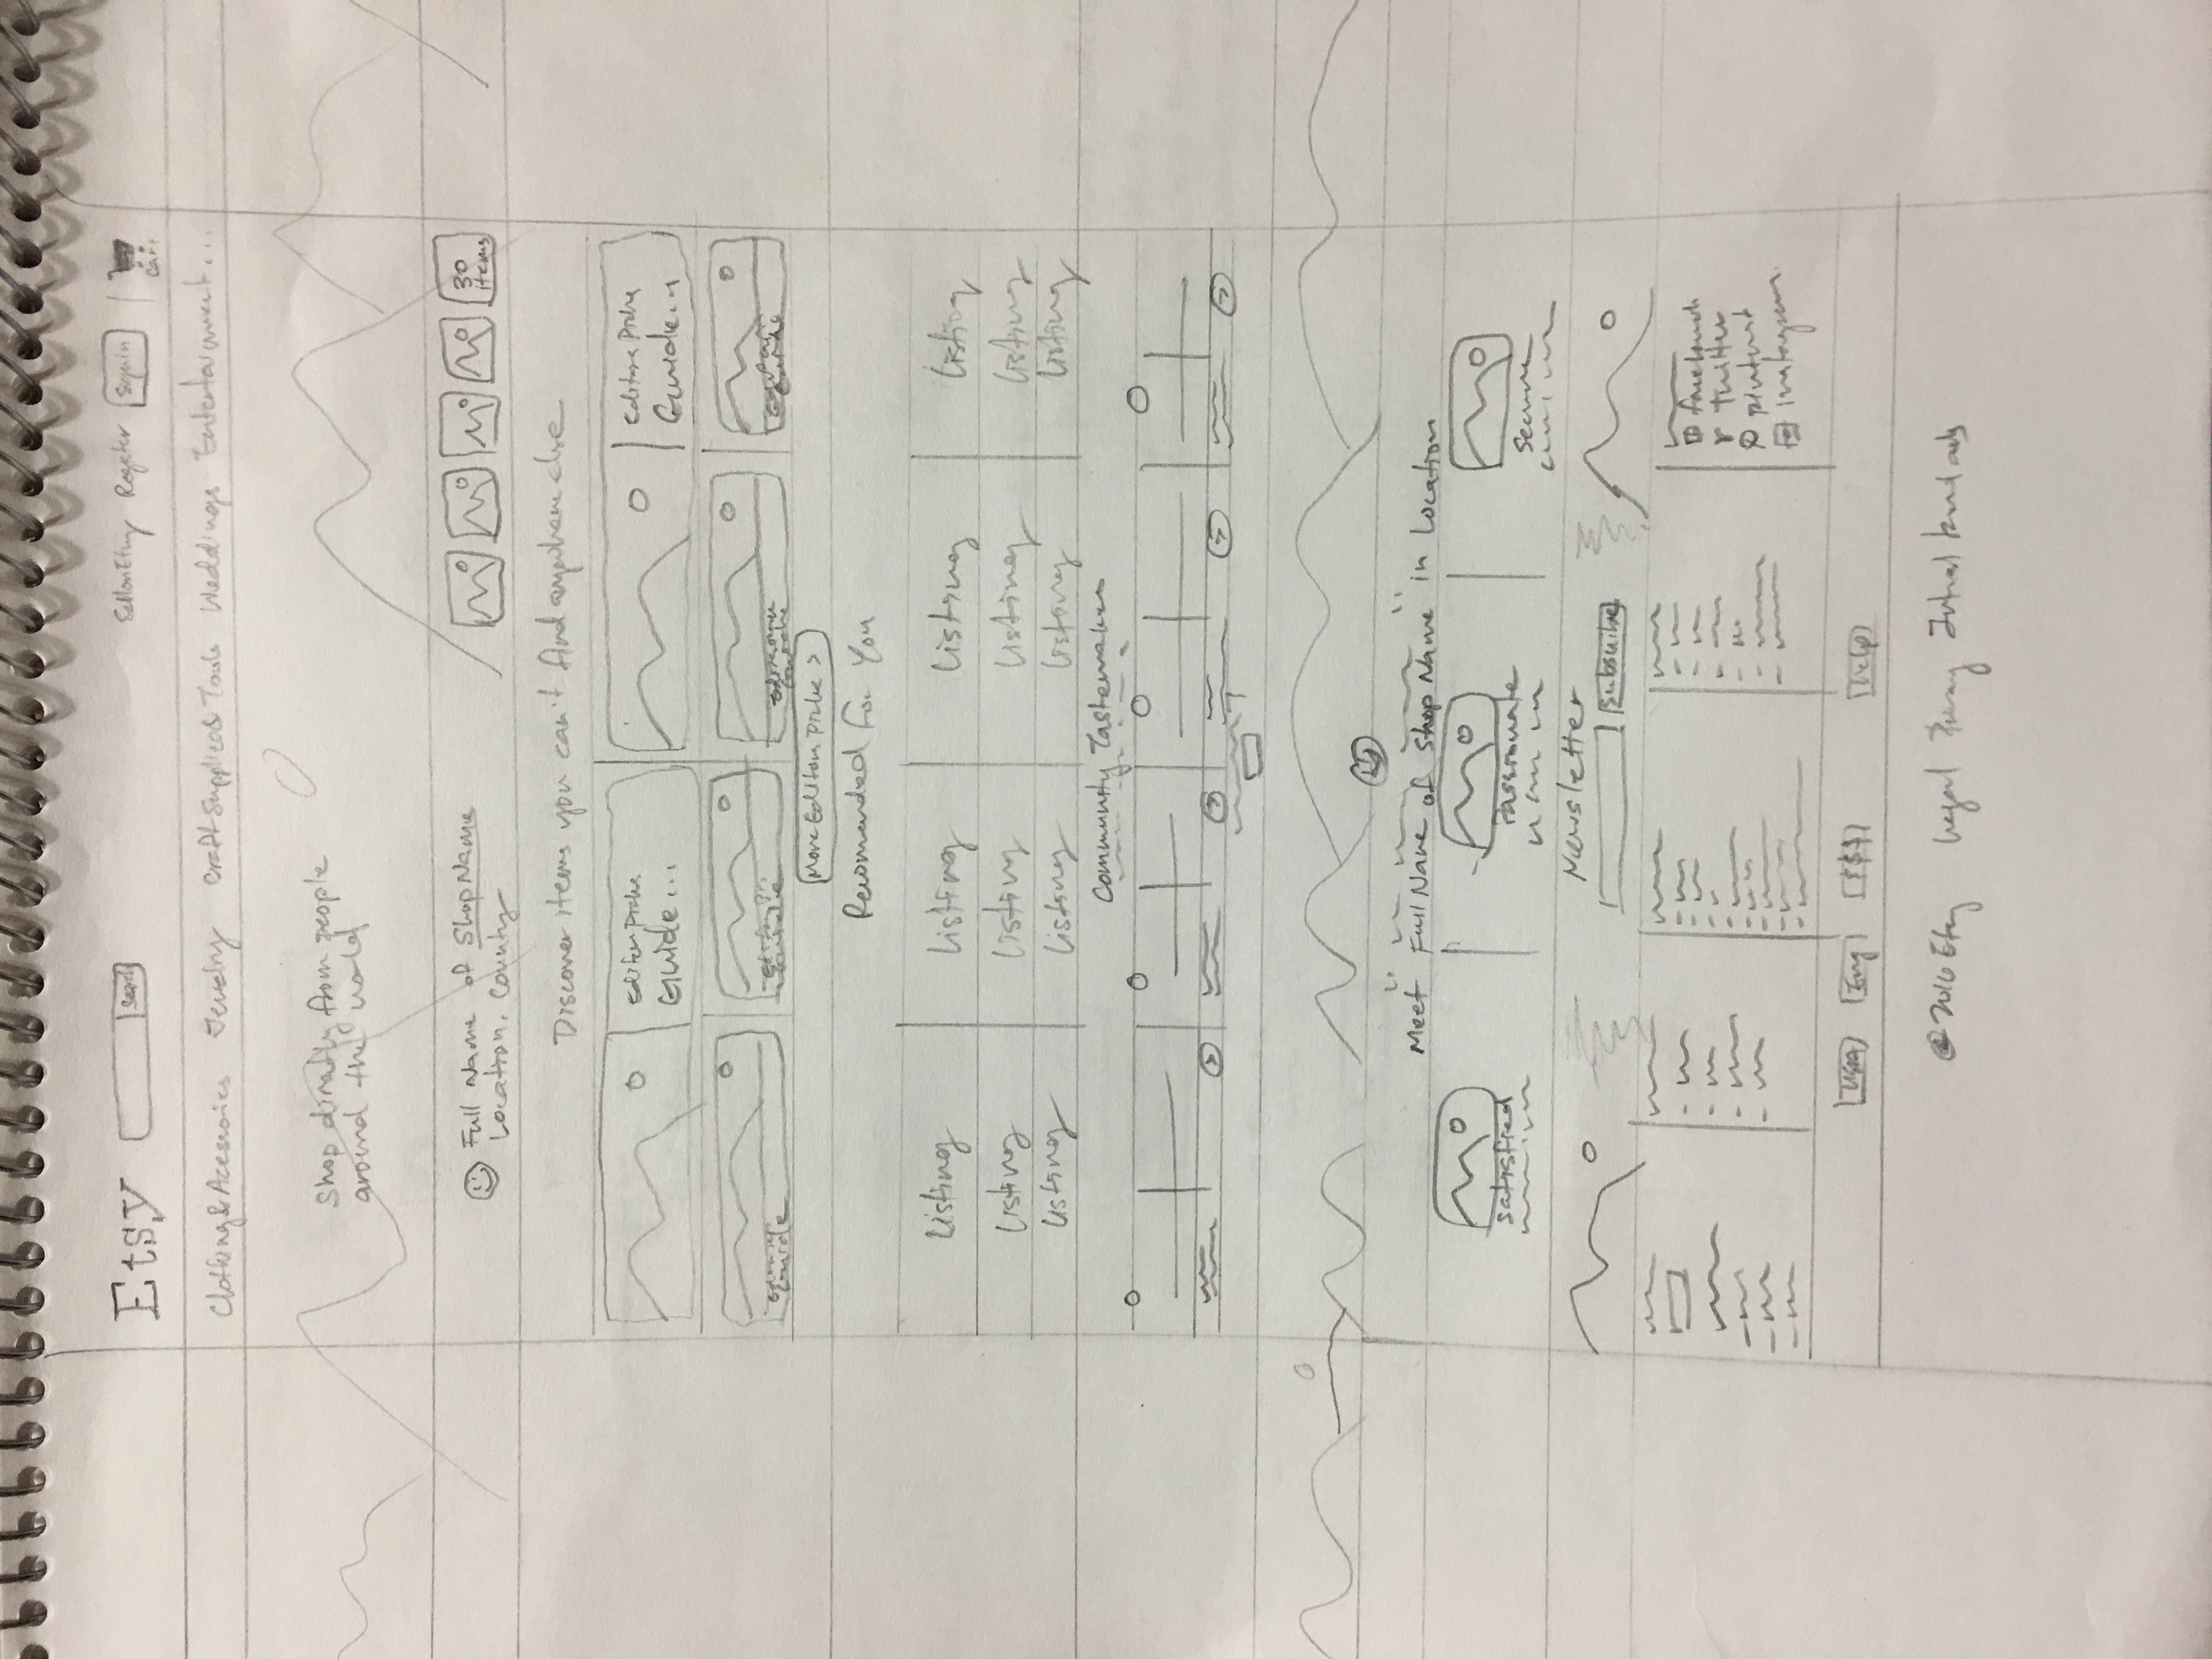 Etsy Search Sell on Etsy Register Sign in Cart
Clothing & Acessories Jewelry Craft Supplies & Tools Weddings Entertainment...
Shop directly from people
around the world
Full Name of Shop Name
Location, County
30
items
Discover items you can't find anywhere else
Editors Picks Editors Picks
Guide... Guide...
Guide Guide Guide Guide
More Editors Picks >
Recomended For You
Listing Listing Listing Listing
Listing Listing Listing Listing
Listing Listing Listing Listing
Community Tastemakers
Meet "Full Name of Shop Name" in Location
Satisfied Passionate Secure
Newsletter
Subscribe
facebook
twitter
pintrest
Instagram
USA Eng $$$ Help
©2016 Etsy Legal Privacy